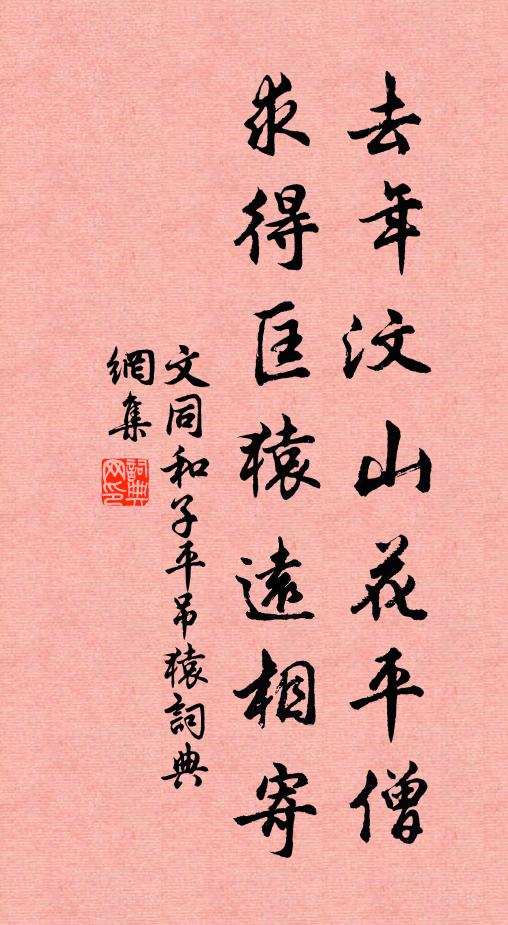 去年汶山花平僧
求得匡猿遠相寄
文同和子平吊猿詞典
網集
詞典網印